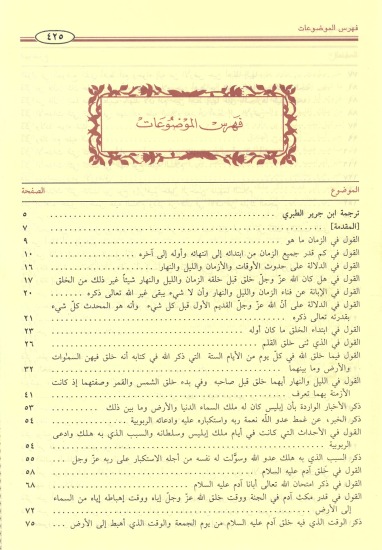 فهرس الموضوعات
٤٢٥
فهرس الموضوعات
الموضوع الصفحة
ترجمة ابن جرير الطبري ٥
[المقدمة] ٧
القول في الزمان ما هو ٩
القول في كم قدر جميع الزمان من ابتدائه إلى انتهائه وأوله إلى آخره ١٠
القول في الدلالة على حدوث الأوقات والأزمان والليل والنهار ١٦
القول في هل كان الله عزّ وجلّ خلق قبل خلقه الزمان والليل والنهار شيئاً غير ذلك من الخلق ١٧
القول في الإبانة عن فناء الزمان والليل والنهار وأن لا شيء يبقى غير الله تعالى ذكره ٢٠
القول في الدلالة على أنّ الله عزّ وجلّ القديم الأول قبل كل شيء وأنه هو المحدث كلّ شيء
بقدرته تعالى ذكره ٢١
القول في ابتداء الخلق ما كان أوله ٢٣
القول في الذي ثنى خلق القلم ٢٦
القول فيما خلق الله في كلّ يوم من الأيام الستة التي ذكر الله في كتابه أنه خلق فيهن السموات
والأرض وما بينهما ٣٢
القول في الليل والنهار أيهما خلق قبل صاحبه وفي بدء خلق الشمس والقمر وصفتهما إذ كانت
الأزمنة بهما تعرف ٤١
ذكر الأخبار الواردة بأن إبليس كان له ملك السماء الدنيا والأرض وما بين ذلك ٥٣
ذكر الخبر، عن غمط عدو الله نعمة ربه واستكباره عليه وادعائه الربوبية ٥٤
القول في الأحداث التي كانت في أيام ملك إبليس وسلطانه والسبب الذي به هلك وادعى
الربوبية ٥٤
ذكر السبب الذي به هلك عدو الله وسوَّلت له نفسه من أجله الاستكبار على ربه عزّ وجل ٥٥
القول في خلق آدم عليه السلام ٥٨
القول في ذكر امتحان الله تعالى أبانا آدم عليه السلام ٦٨
القول في قدر مكث آدم في الجنة ووقت خلق الله عزّ وجلّ إياه ووقت إهباطه إياه من السماء
إلى الأرض ٧٢
ذكر الوقت الذي فيه خلق آدم عليه السلام من يوم الجمعة والوقت الذي أهبط إلى الأرض ٧٥